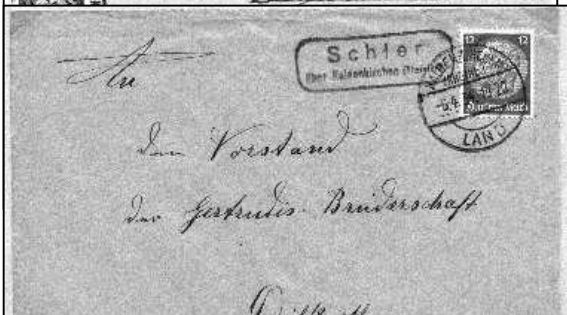 Schier
über Kaldenkirchen
12 12
Deutsches Reich
LAND
An
den Vorstand
der Gertrudis-Bruderschaft